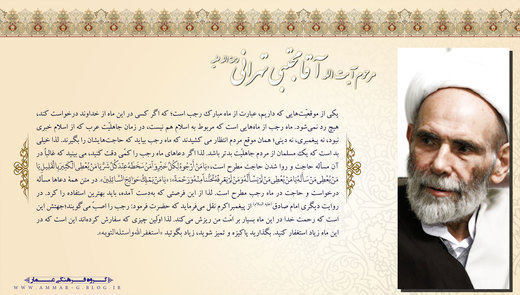 مرحوم آیت الله آقا مجتبی تهرانی رحمة الله علیه
یکی از موقعیّت‌هایی که داریم، عبارت از ماه مبارک رجب است؛ که اگر کسی در این ماه از خداوند درخواست کند،
هیچ رد نمی‌شود. ماه رجب از ماه‌هایی است که مربوط به اسلام هم نیست، در زمان جاهلیّت عرب که از اسلام خبری
نبود، نه پیغمبری، نه دینی؛ همان موقع مردم انتظار می کشیدند که ماه رجب بیاید که حاجت‌هایشان را بگیرند. لذا خیلی
بد است که یک مسلمان از مردم جاهلیّت بدتر باشد. لذا اگر دعاهای ماه رجب را کمی دقت کنید، می بینید که غالباً در
آن مسأله حاجت و روا شدن حاجت مطرح است، «یا مَنْ أَرْجُوهُ لِكُلِّ خَيْرٍ وَ آمَنُ سَخَطَهُ عِنْدَ كُلِّ شَرٍّ يَا مَنْ يُعْطِي الْكَثِيرَ بِالْقَلِيلِ يَا
مَنْ يُعْطِي مَنْ سَأَلَهُ يَا مَنْ يُعْطِي مَنْ لَمْ يَسْأَلْهُ وَ مَنْ لَمْ يَعْرِفْهُ تَحَنُّناً مِنْهُ وَ رَحْمَةً»، «یا مَنْ یَمْلِکُ حَوائِجَ السّائِلینَ». در متن همۀ دعاها مسأله
درخواست و حاجت در ماه رجب مطرح است. لذا از این فرصتی که به‌دست آمده، باید بهترین استفاده را کرد. در
روایت دیگری امام صادق (علیه السلام) از پیغمبراکرم نقل می‌فرماید که حضرت فرمود: رجب را اصب می‌گویند؛جهتش این
است که رحمت خدا در این ماه بسیار بر امّت من ریزش می‌کند. لذا اوّلین چیزی که سفارش کرده‌اند این است که در
این ماه زیاد استغفار کنید. بگذارید پاکیزه و تمیز شوید، زیاد بگوئید «استغفرالله واسئله‌التوبه».
گروه فرهنگی عمار
WWW.AMMAR-G.BLOG.IR